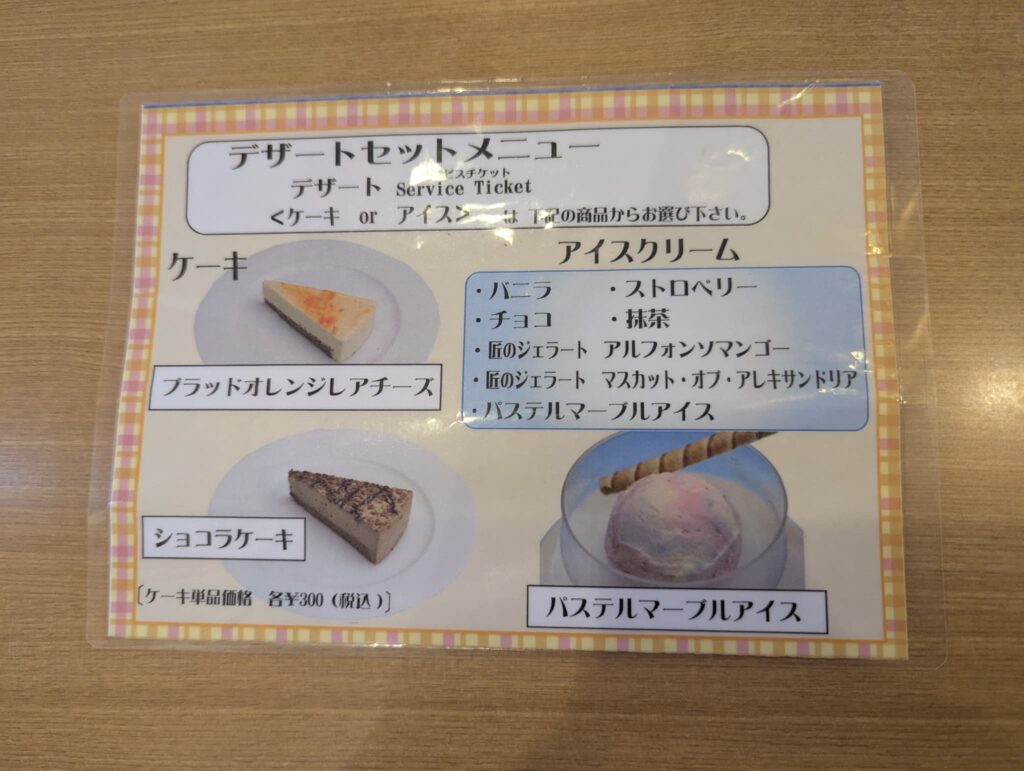 デザートセットメニュー
ビスチケット
デザート Service Ticket
<ケーキ or アイス> は 下記の商品からお選び下さい。
ケーキ
ブラッドオレンジレアチーズ
ショコラケーキ
[ケーキ単品価格 各¥300(税込)]
アイスクリーム
・バニラ ・ストロベリー
・チョコ ・抹茶
・匠のジェラート アルフォンソマンゴー
・匠のジェラート マスカット・オブ・アレキサンドリア
・パステルマーブルアイス
パステルマーブルアイス